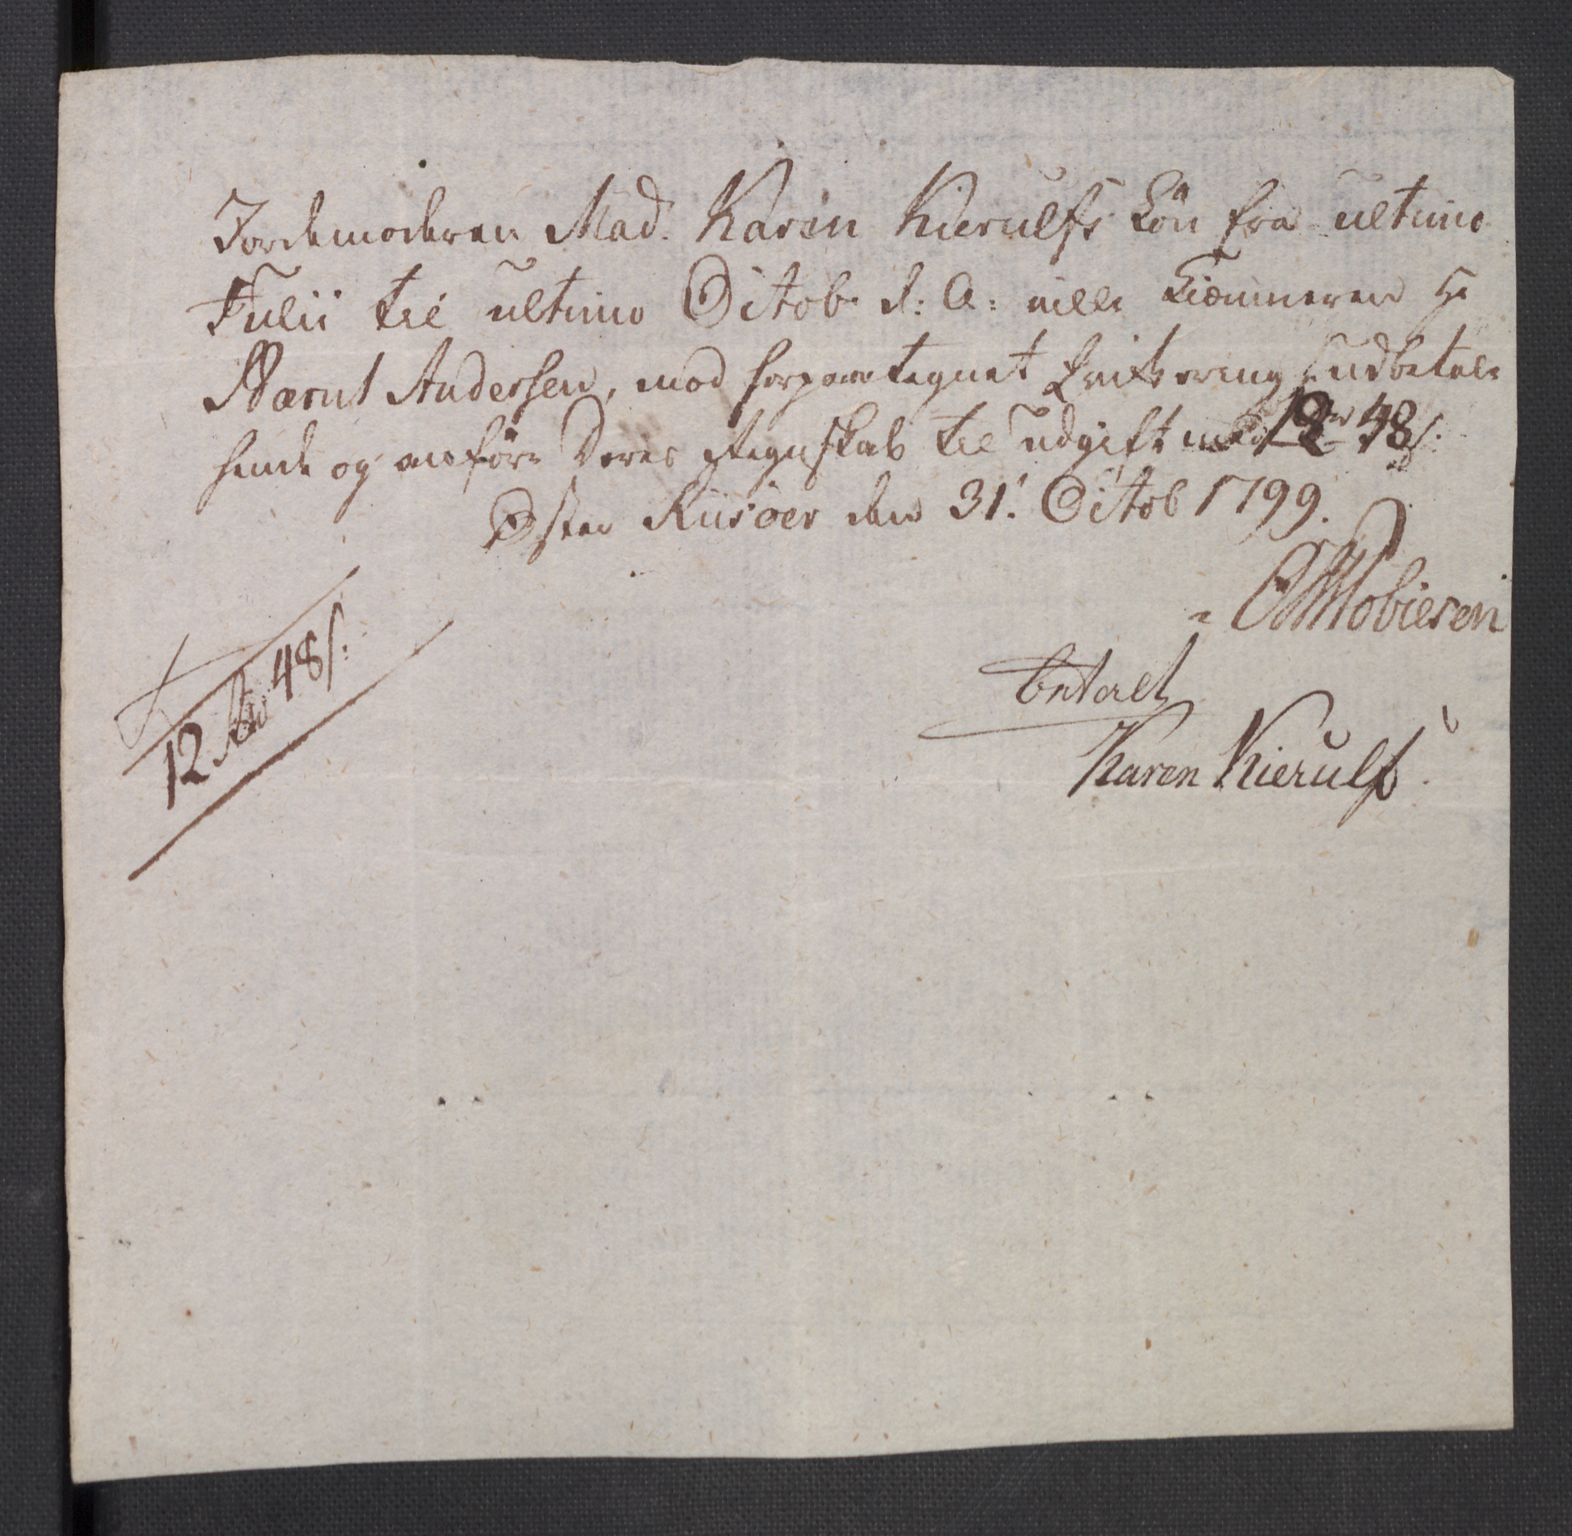 Jordemoderen Mad. Karen Kierulfs Løn fra ultimo
Julii til ultimo Octob. d: A: ville Kiemneren Hr
Bærnt Andersen, mod herpaategnet Qvittering udbetale
hende og anføre Deres Regnskab til Udgift med 12 Rdr 48 s:
Øster Riisøer den 31. Octob 1799.
Tobiesen
betalt
Karen Kierulf
12 Rdr 48 s: